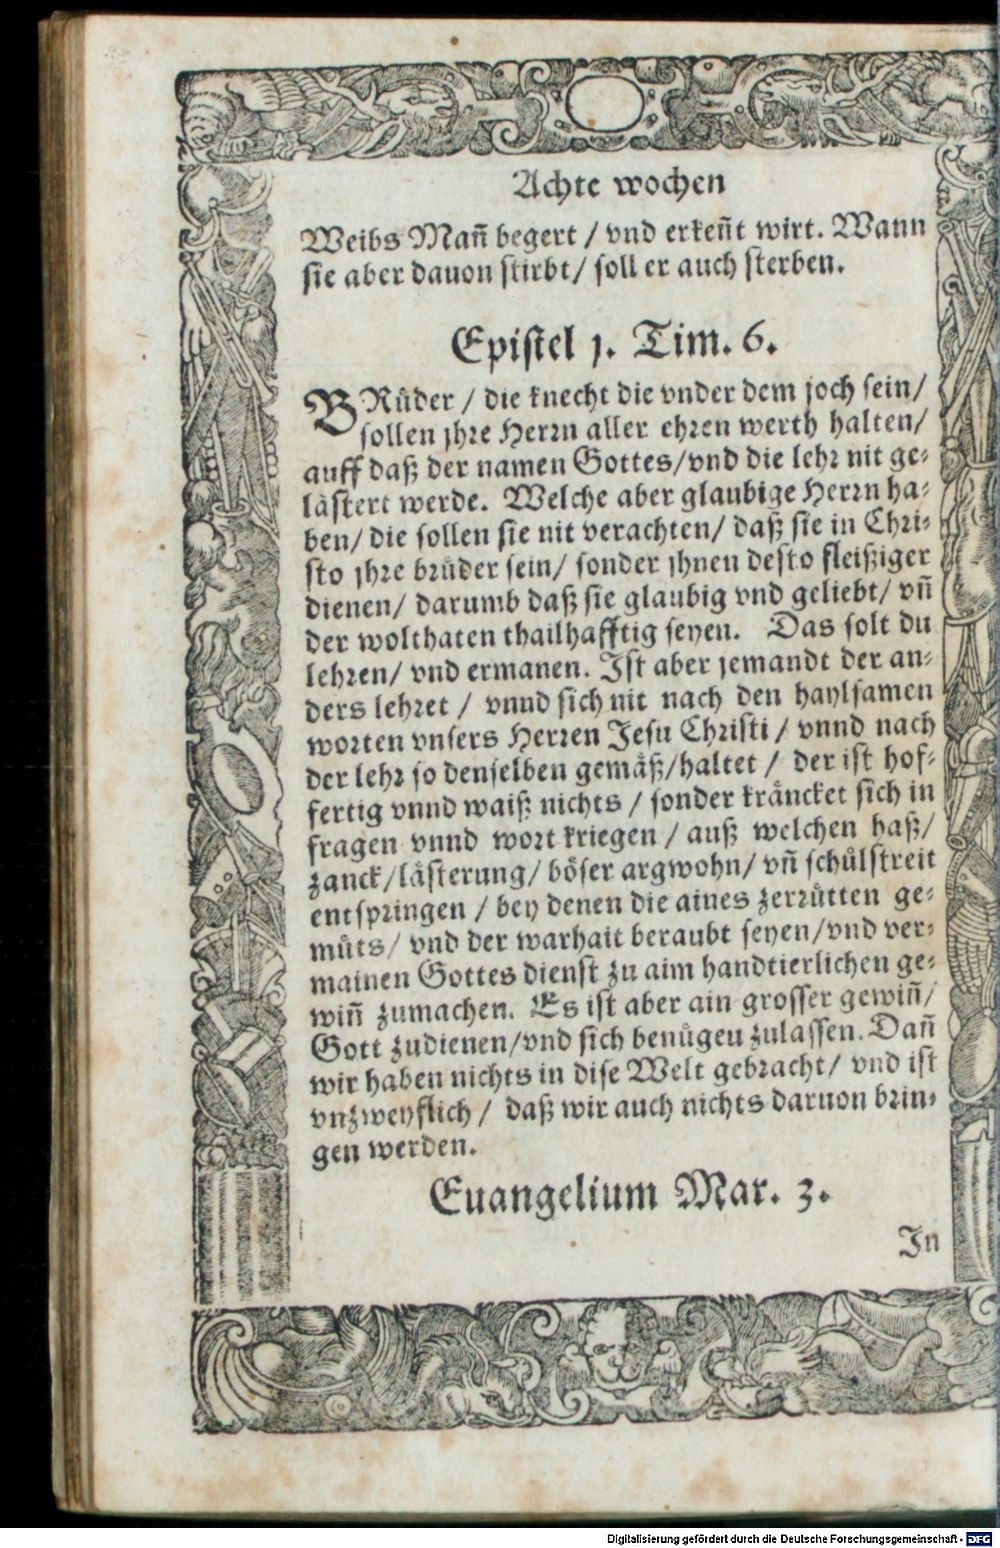 Achte wochen
Weibs Mañ begert / vnd erkeñt wirt. Wann
sie aber dauon stirbt/ soll er auch sterben.
Epistel j. Tim. 6.
BRůder / die knecht die vnder dem joch sein/
sollen jhre Herrn aller ehren werth halten/
auff daß der namen Gottes/vnd die lehr nit ge-
lästert werde. Welche aber glaubige Herrn ha-
ben/ die sollen sie nit verachten/ daß sie in Chri-
sto jhre brůder sein/ sonder jhnen desto fleißiger
dienen/ darumb daß sie glaubig vnd geliebt/ vñ
der wolthaten thailhafftig seyen. Das solt du
lehren/ vnd ermanen. Ist aber jemandt der an-
ders lehret / vnnd sich nit nach den haylsamen
worten vnsers Herren Jesu Christi / vnnd nach
der lehr so denselben gemäß/haltet / der ist hof-
fertig vnnd waiß nichts / sonder kräncket sich in
fragen vnnd wort kriegen / auß welchen haß/
zanck/lästerung/ böser argwohn/ vñ schůlstreit
entspringen / bey denen die aines zerrütten ge-
můts/ vnd der warhait beraubt seyen/vnd ver-
mainen Gottes dienst zu aim handtierlichen ge-
wiñ zumachen. Es ist aber ain grosser gewiñ/
Gott zudienen/vnd sich benůgen zulassen. Dañ
wir haben nichts in dise Welt gebracht/ vnd ist
vnzweyflich / daß wir auch nichts daruon brin-
gen werden.
Euangelium Mar. 3.
In
Digitalisierung gefördert durch die Deutsche Forschungsgemeinschaft - DFG